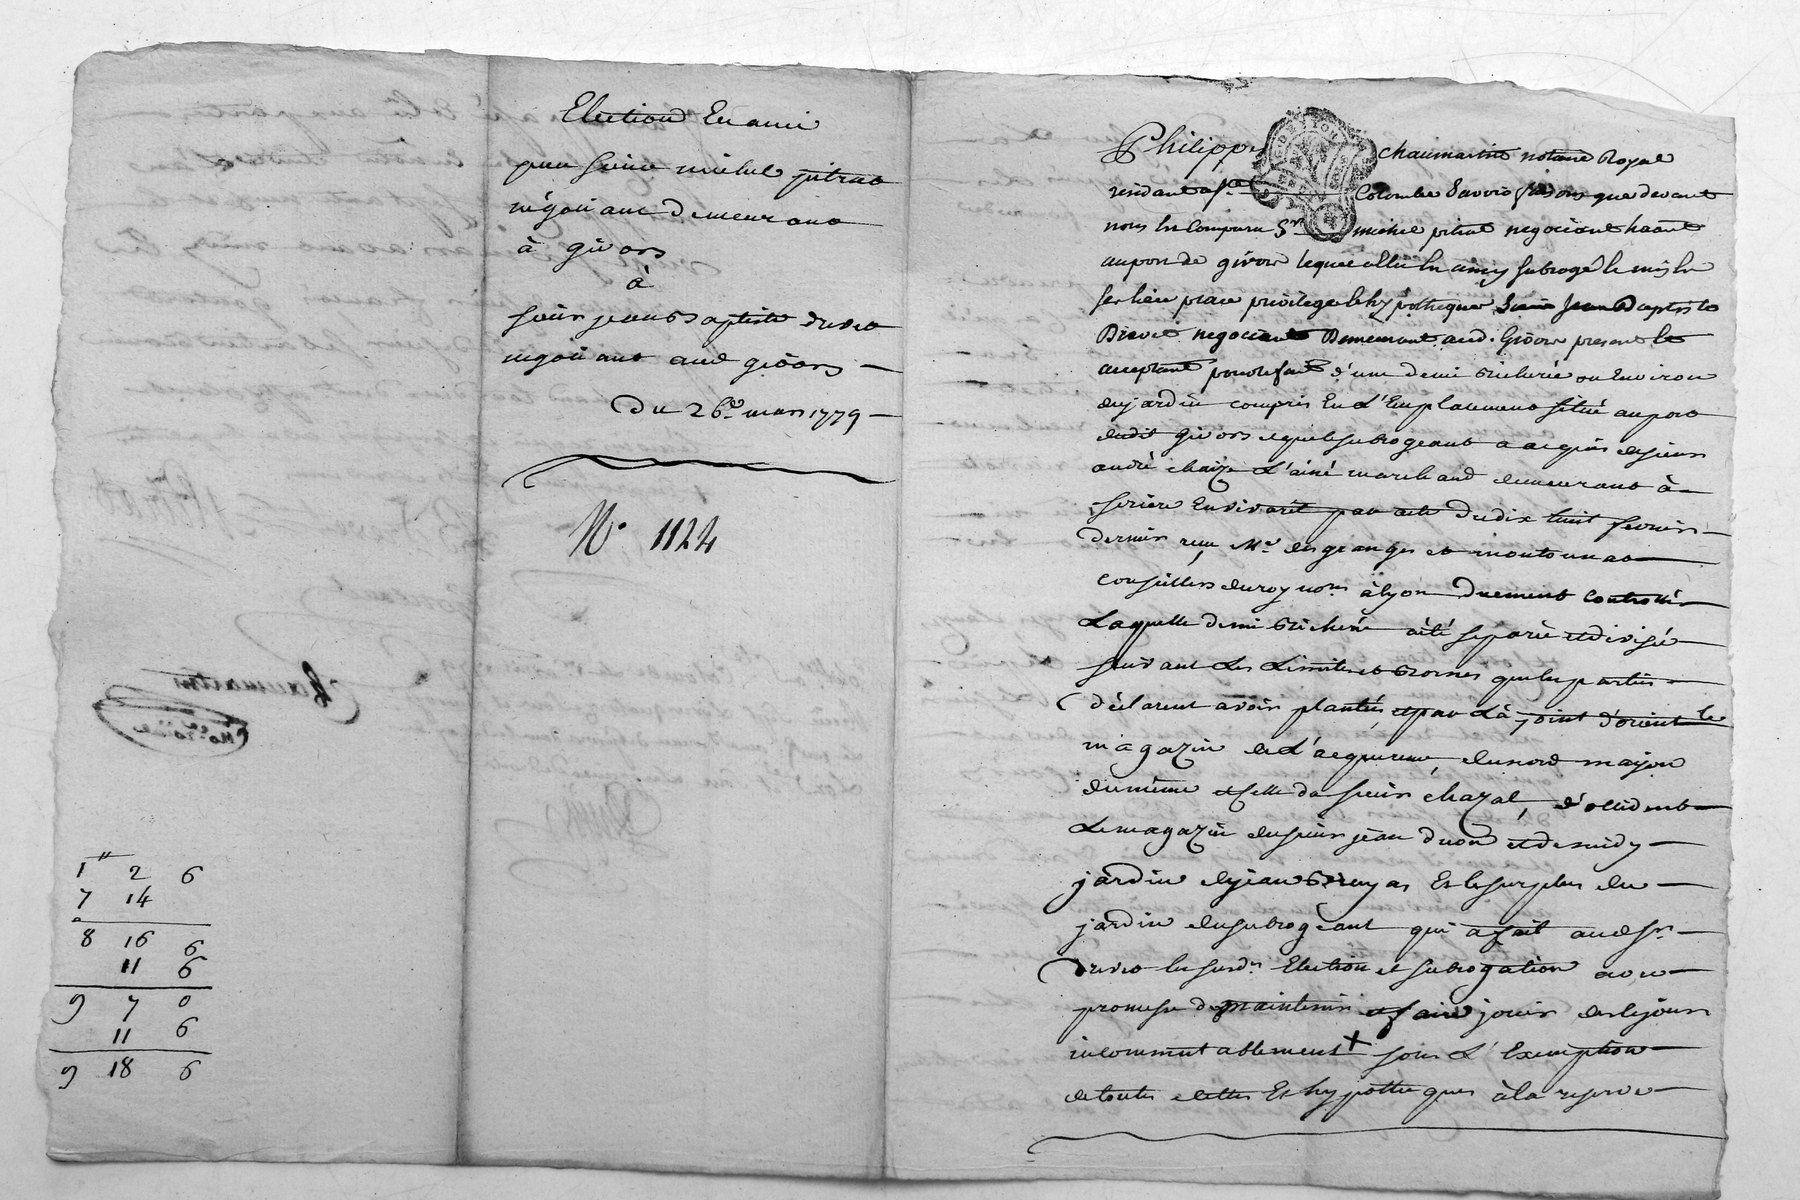 Election En ami
par sieur michel pitrat
négotiant demeurant
à givors
à
sieur jean Baptiste drevet
negotiant aud givors
Du 26e mars 1779
N° 1124
Chaumartin
Notaire
1" 2 6
7 14
8 16 6
11 6
9 7 0
11 6
9 18 6
Philippe Chaumartin notaire Royal
residant a Ste Colombe savoir faisons que devant
nous est comparu Sr michel pitrat negociant
au port de givors lequel a élu en amy subrogé et mis en
ses lieu place privilege et hypotheque sieur Jean Baptiste
Drevet negociant Demeurant aud. Givors present et
acceptant d'une demi Bicherée ou Environ
de jardin compris En L'Emplacement situé au port
dudit Givors et que le subrogeant a acquis de sieur
andré chaize L'ainé marchand demeurant à
serière En vivarêt par acte du dix huit fevrier
dernier reçu Me desgranges et
conseillers du roy nores à lyon duement controllé
Laquelle demi Bicherée a été separée et divisée
suivant Les Limites et Bornes que les parties
déclarent avoir plantés, et par Là joint d'orient le
magazin de L'acquereur, du nord maison
du même et celle du sieur chazal, d'occident
Le magazin du sieur jean et de midy
jardin de jean Et le surplus du
jardin du subrogeant qui a fait aud Sr
drevet les susdes Election et subrogation avec
promesse de maintenir et faire jouir
incommutablement + sous L'Exemption
de toutes dettes Et hypotheques à la reserve